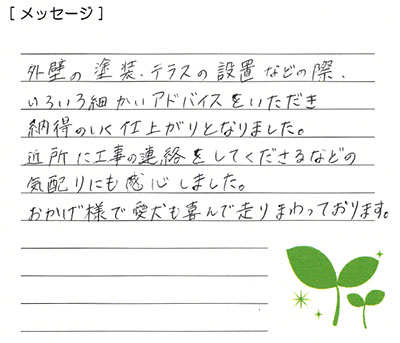 [メッセージ]
外壁の塗装、テラスの設置などの際、
いろいろ細かいアドバイスをいただき
納得のいく仕上がりとなりました。
近所に工事の連絡をしてくださるなどの
気配りにも感心しました。
おかげ様で愛犬も喜んで走りまわっております。